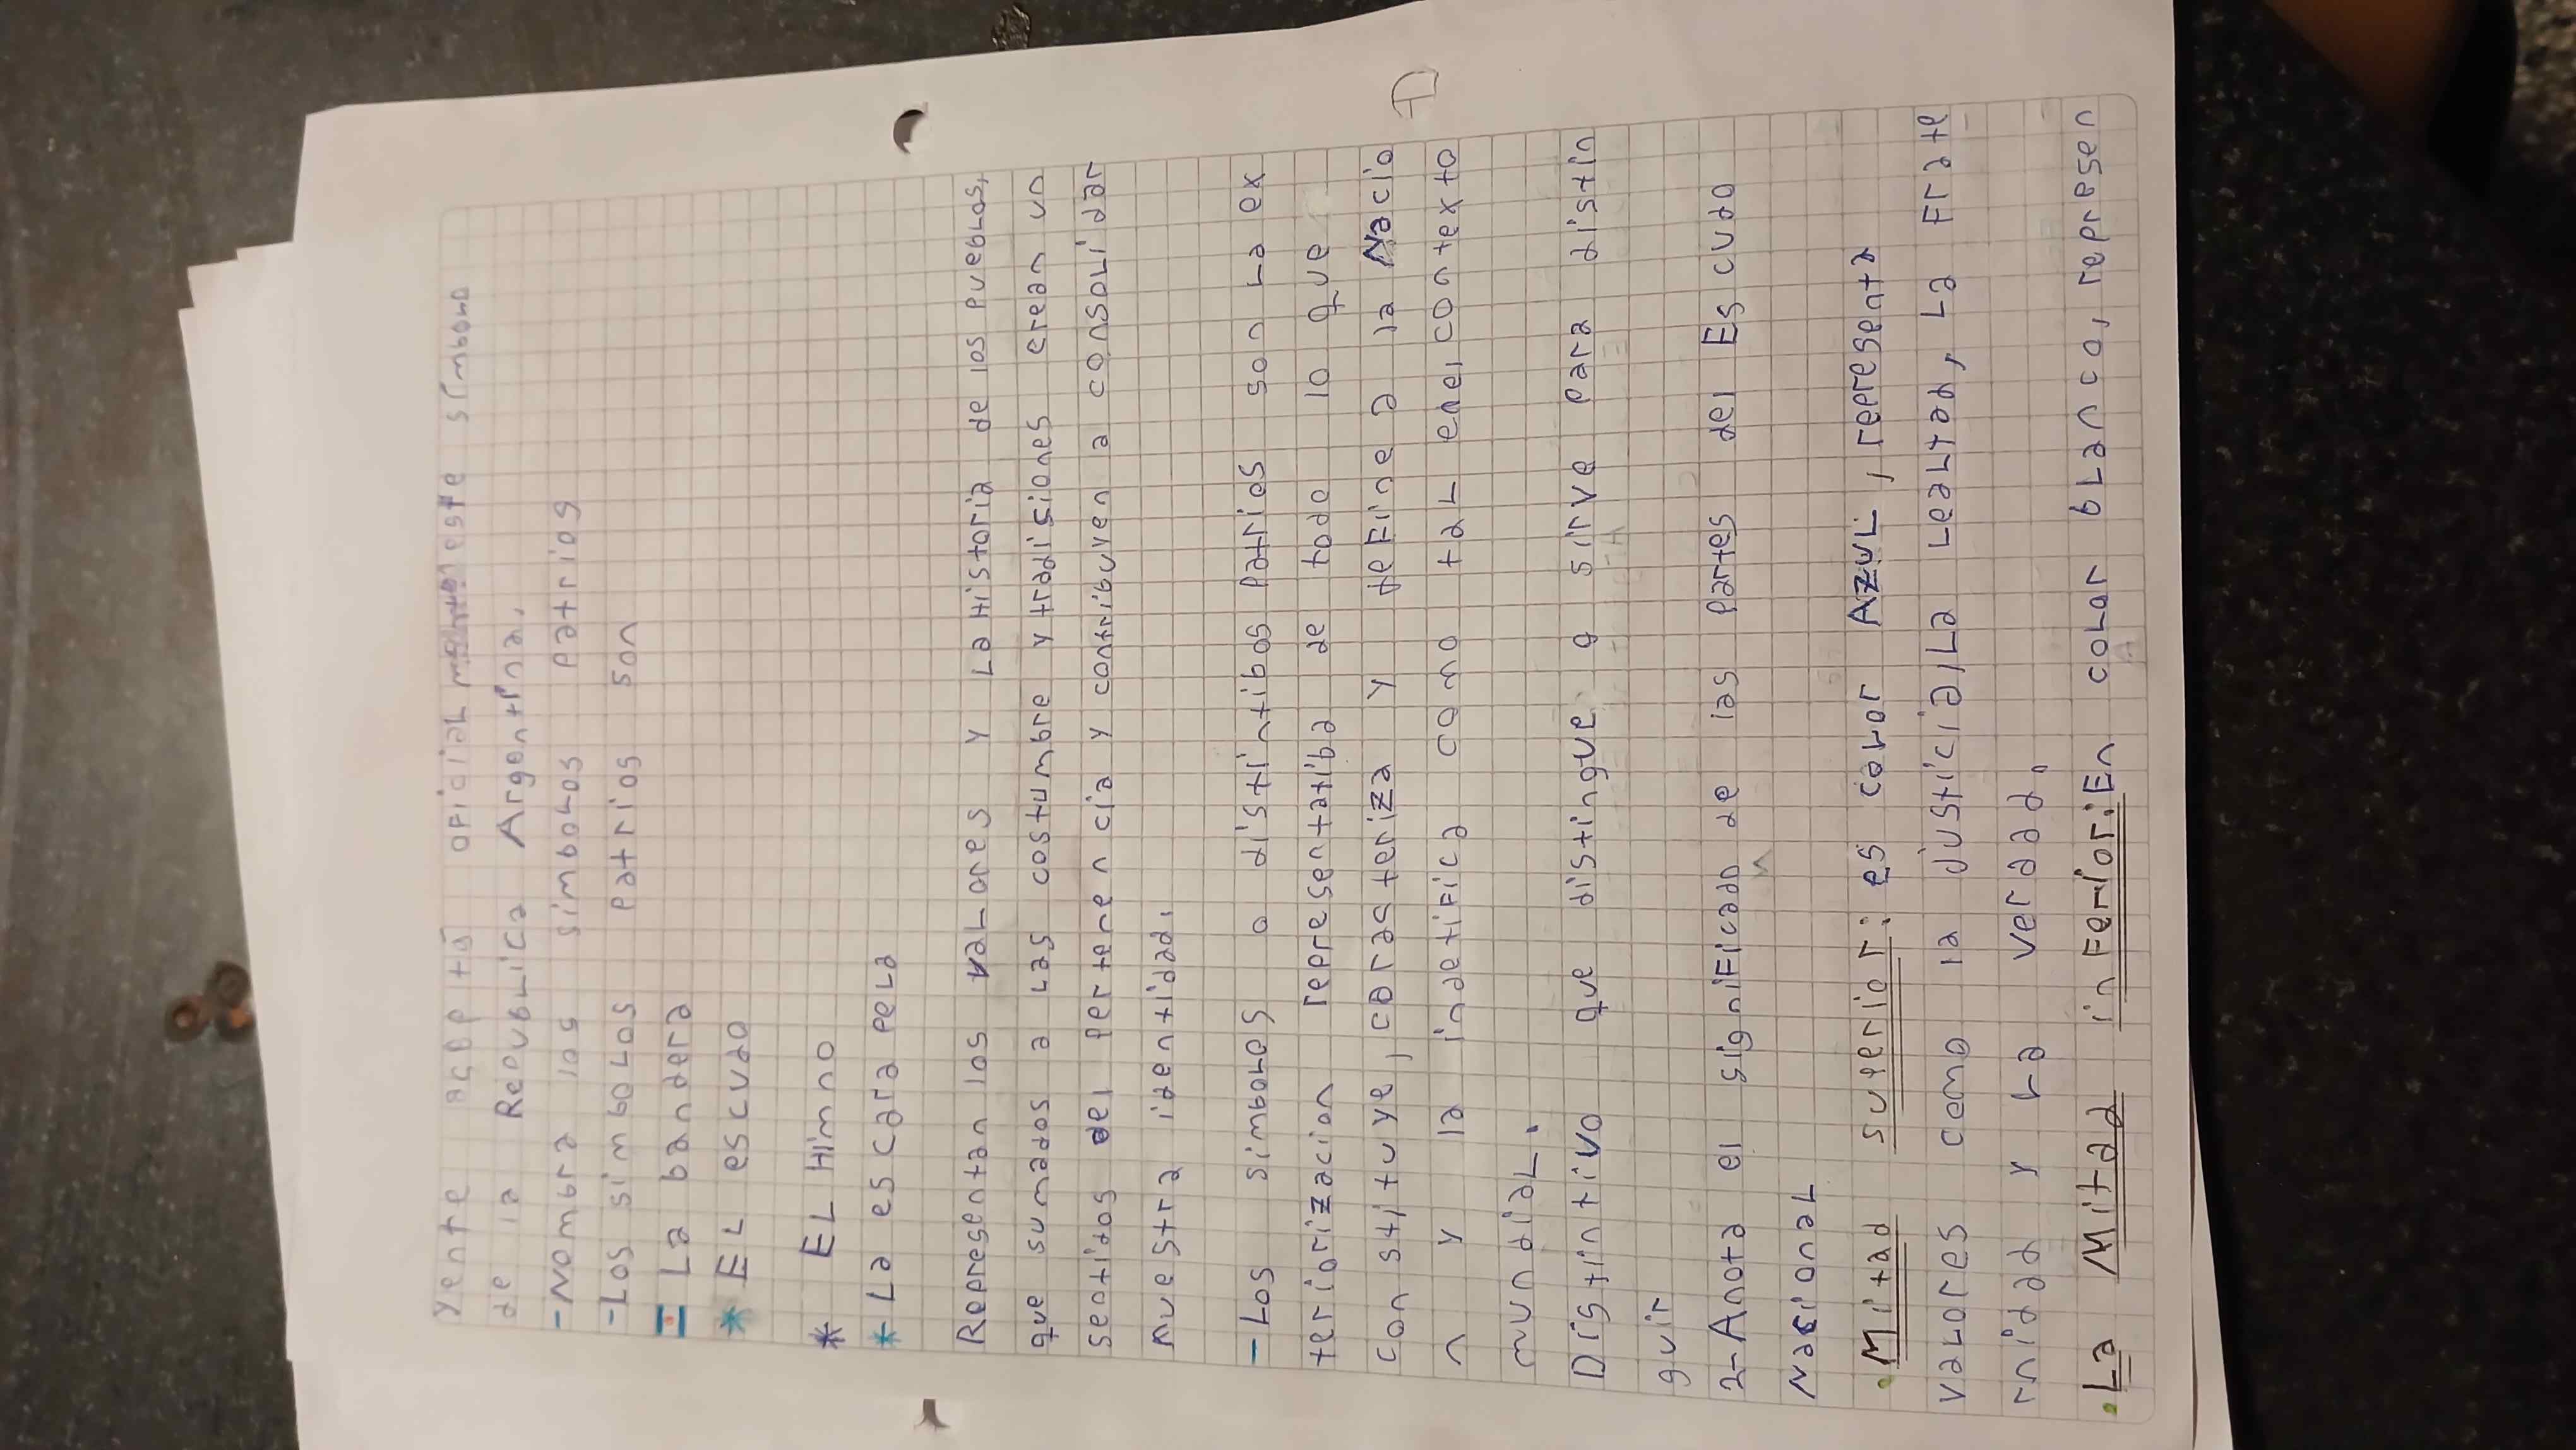 yente acepta oficial mente este simbolo
de la Republica Argentina.
-Nombra los simbolos patrios
-Los simbolos patrios son
La bandera
* EL escudo
* EL Himno
* La escarapela
Representan los valores y La Historia de los pueblos,
que sumados a Las costumbre y tradisiones crean un
sentidos del pertenencia y contribuyen a consolidar
nuestra identidad.
-Los simbolos o distintibos patrios son La ex
teriorizacion representatiba de todo lo que
constituye, carasteriza y define a la Nacio
n y la indetifica como tal enel contexto
mundial.
Distintivo que distingue o sirve para distin
guir
2-Anota el significado de las partes del Escudo
Nacional
• Mitad superior: es color Azul, representa
valores como la justicia, La Lealtad, La Frate
rnidad y La verdad.
• La Mitad inferior: En color blanco, represen